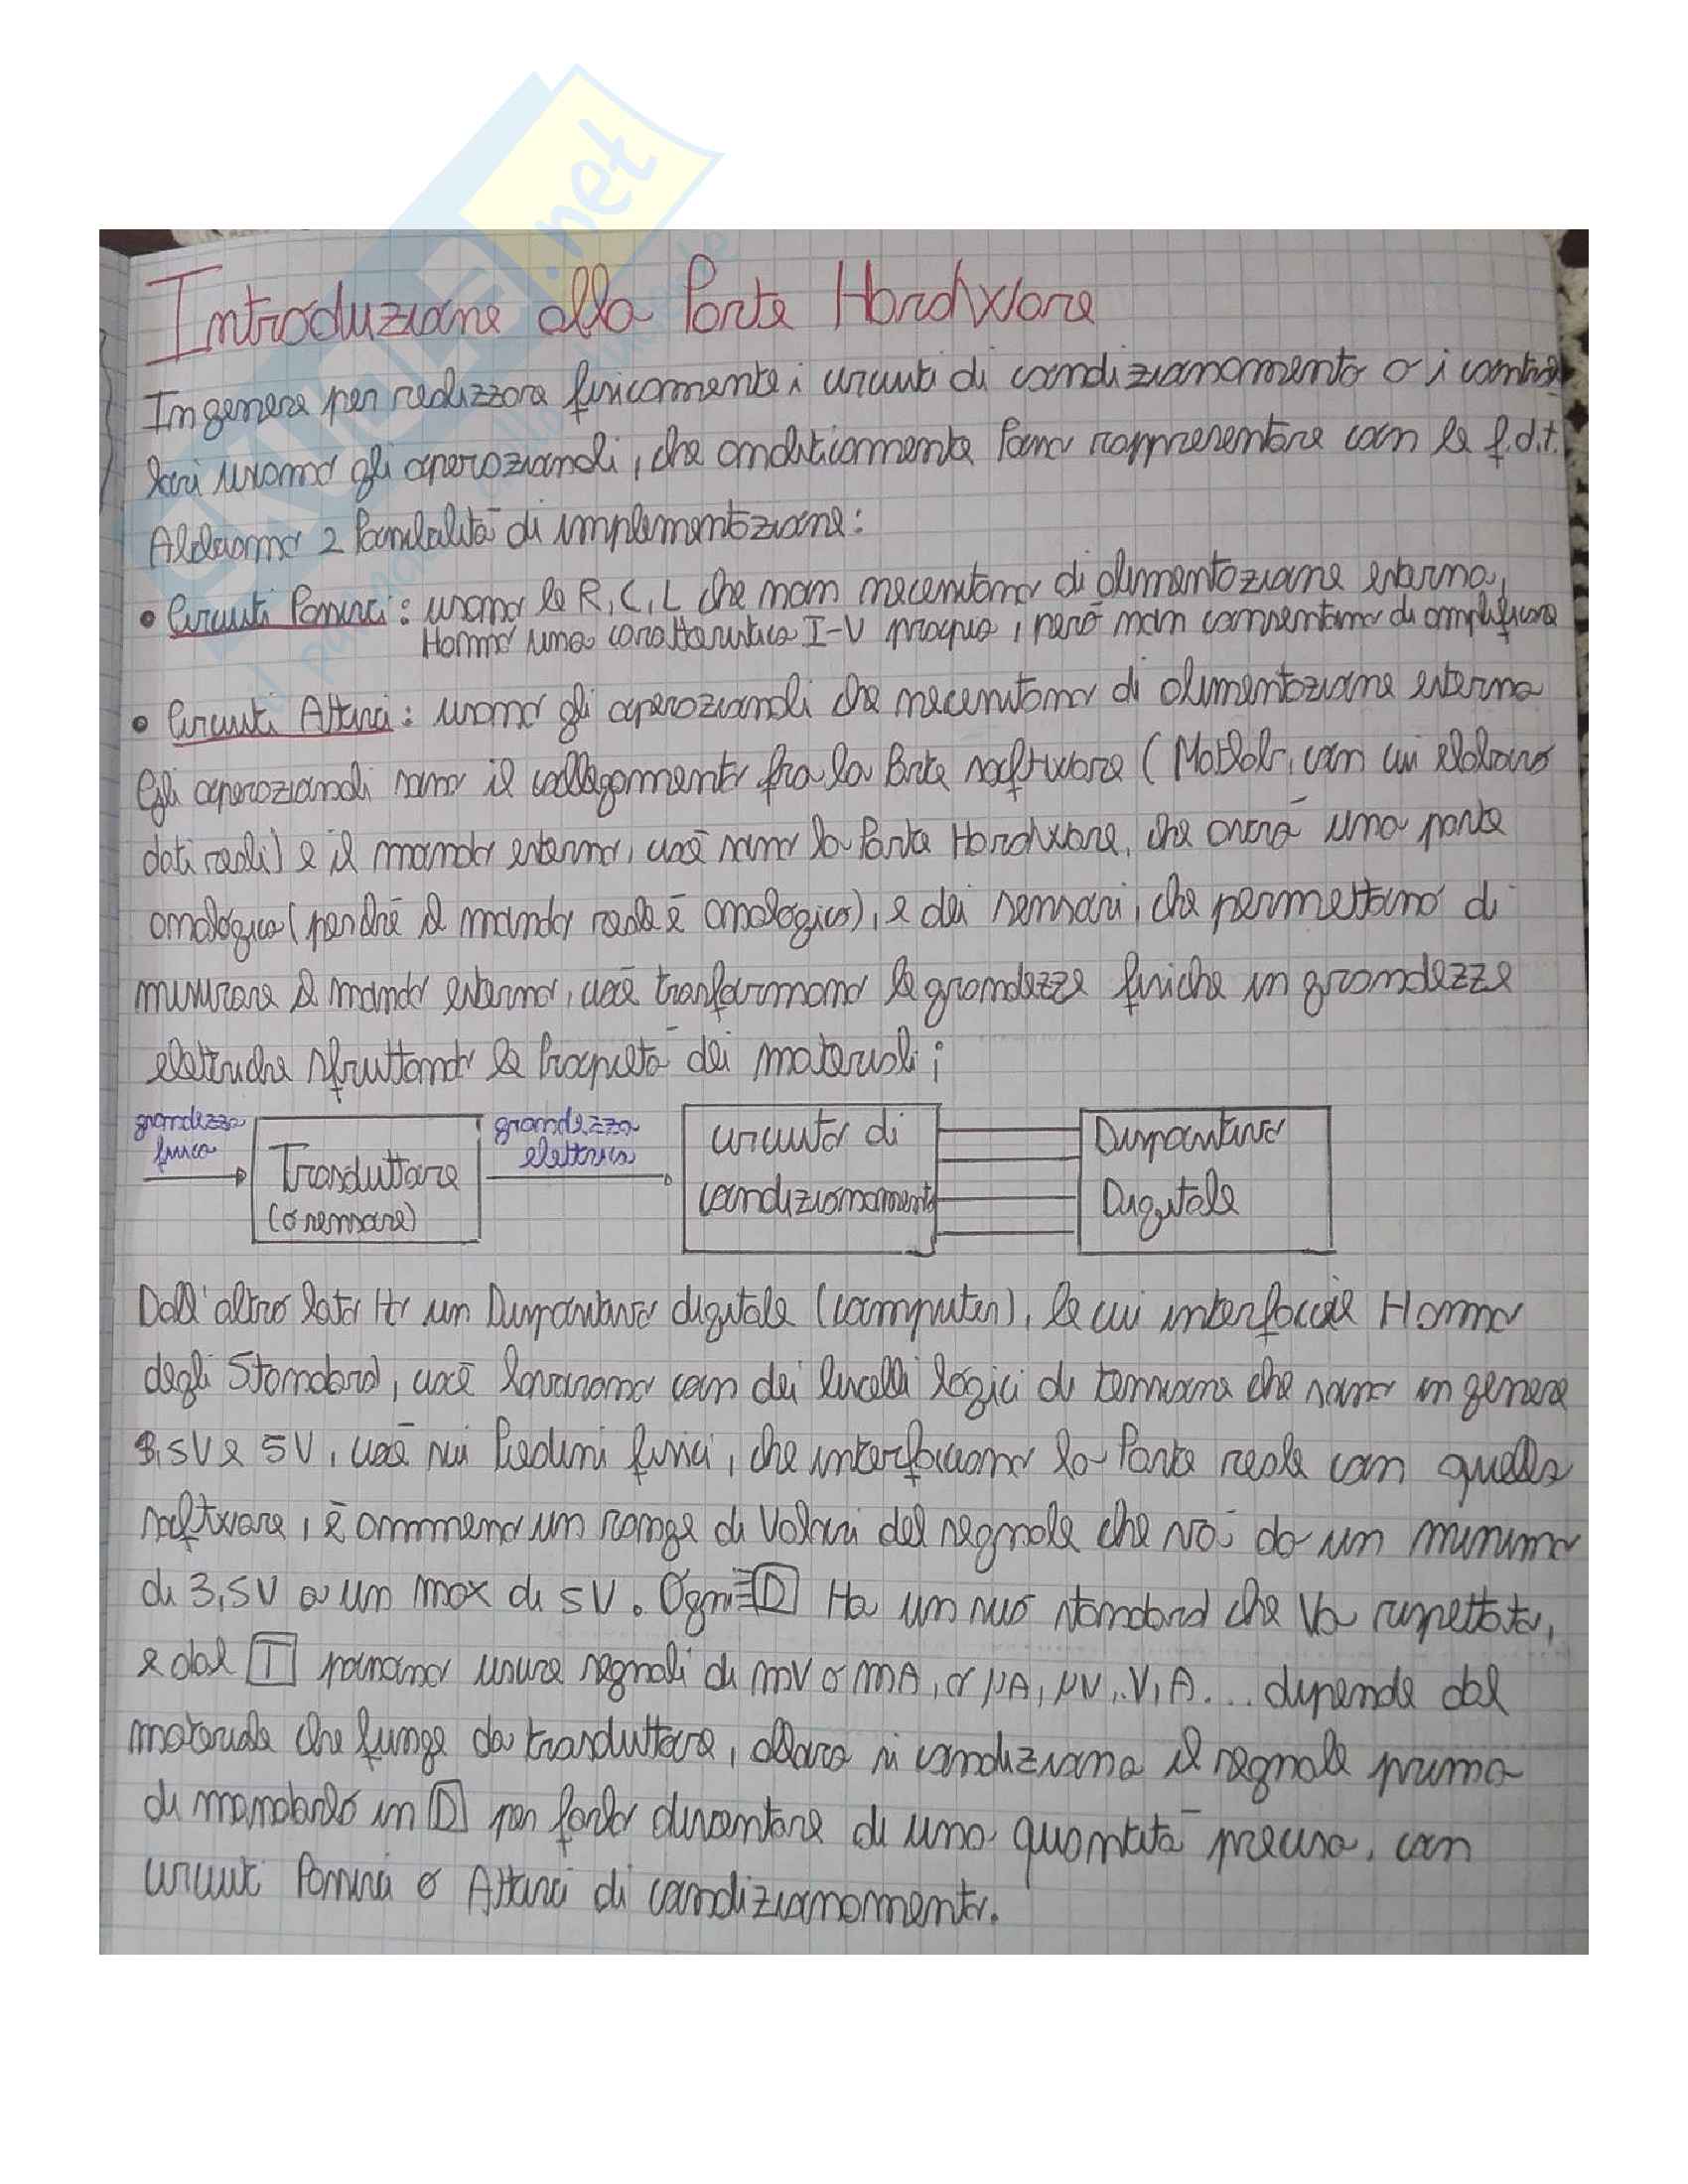 Introduzione alla Parte Hardware
In genere per realizzare fisicamente i circuiti di condizionamento o i control
lori usiamo gli operazionali, che analiticamente Posso rappresentare con le f.d.t.
Abbiamo 2 Possibilità di implementazione:
• Circuiti Passivi: usano le R, C, L che non necessitano di alimentazione esterna,
Hanno una caratteristica I-V propria, però non consentono di amplificare
• Circuiti Attivi: usano gli operazionali che necessitano di alimentazione esterna
Gli operazionali sono il collegamento fra la Parte software (Matlab, con cui elaboro
dati reali) e il mondo esterno, cioè sono la Parte Hardware, che avrà una parte
analogica (perchè il mondo reale è analogico), e dei sensori, che permettono di
misurare il mondo esterno, cioè trasformano le grandezze fisiche in grandezze
elettriche sfruttando le Proprietà dei materiali;
grandezza
fisica
Trasduttore
(o sensore)
grandezza
elettrica
circuito di
condizionamento
Dispositivo
Digitale
Dall'altro lato Ho un Dispositivo digitale (computer), le cui interfaccie Hanno
degli Standard, cioè lavorano con dei livelli logici di tensione che sono in genere
3,5V e 5V, cioè sui Piedini fisici, che interfacciano la Parte reale con quella
software, è ammesso un range di Valori del segnale che và da un minimo
di 3,5V a un max di 5V. Ogni D Ha un suo standard che Va rispettato,
e dal T possono uscire segnali di mV o mA, o μA, μV, V, A... dipende dal
materiale che funge da trasduttore, allora si condiziona il segnale prima
di mandarlo in D per farlo diventare di una quantità precisa, con
circuiti Passivi o Attivi di condizionamento.
SKUOLA.net